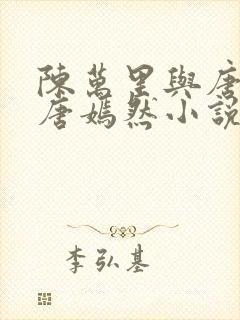 陳萬里與唐
唐嫣然小說
李弘基